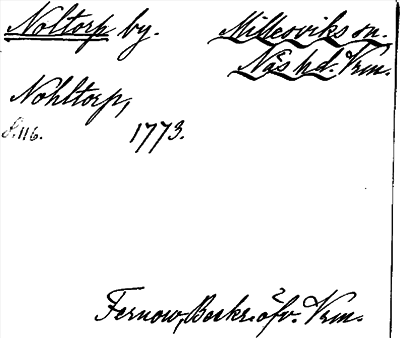 Noltorp by. Millesviks sn.
Näs hd. Vrm.
Nohltorp,
S. 116. 1773.
Fernow, Beskr. öfv. Vrm.